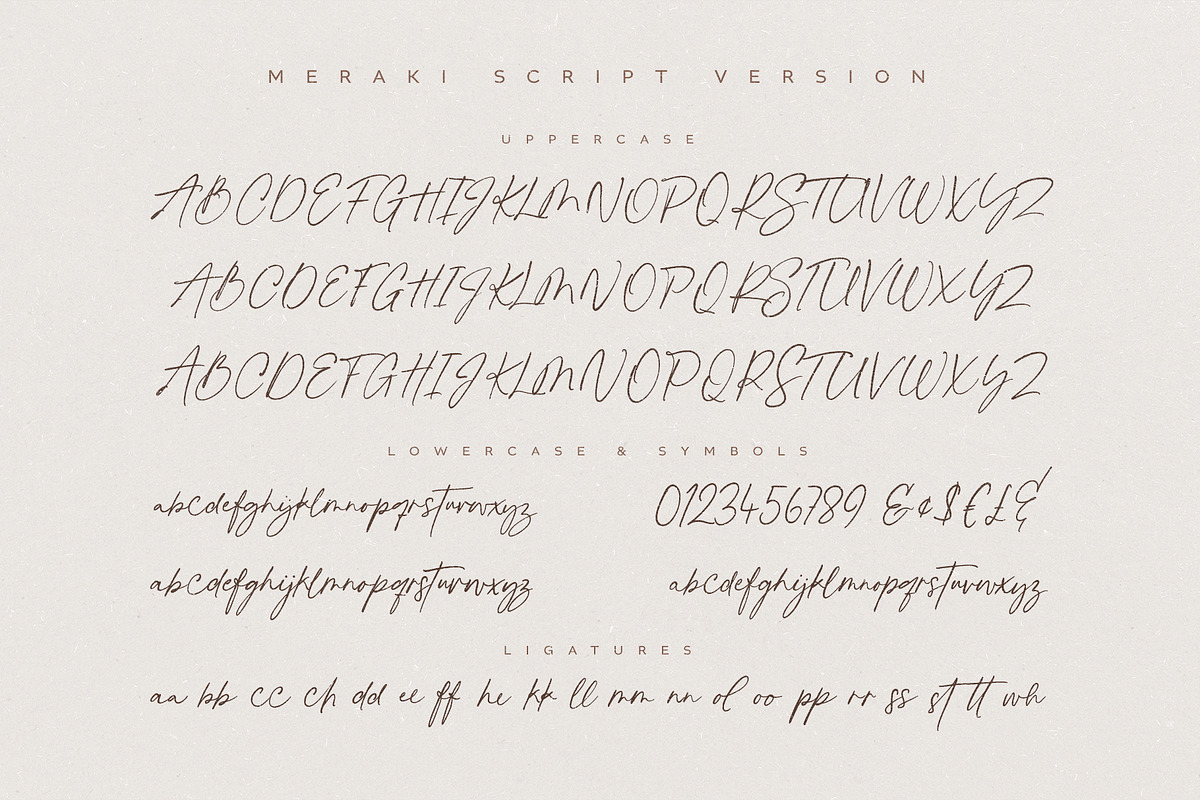 MERAKI SCRIPT VERSION
UPPERCASE
ABCDEFGHIJKLMNOPQRSTUVWXYZ
ABCDEFGHIJKLMNOPQRSTUVWXYZ
ABCDEFGHIJKLMNOPQRSTUVWXYZ
LOWERCASE & SYMBOLS
abcdefghijklmnopqrsturvwxyz
0123456789 &¢$€£&
abcdefghijklmnopqrstuvwxyz
abcdefghijklmnopqrstuvwxyz
LIGATURES
aa bb cc ch dd ee ff he kk ll mm nn ol oo pp rr ss st tt wh